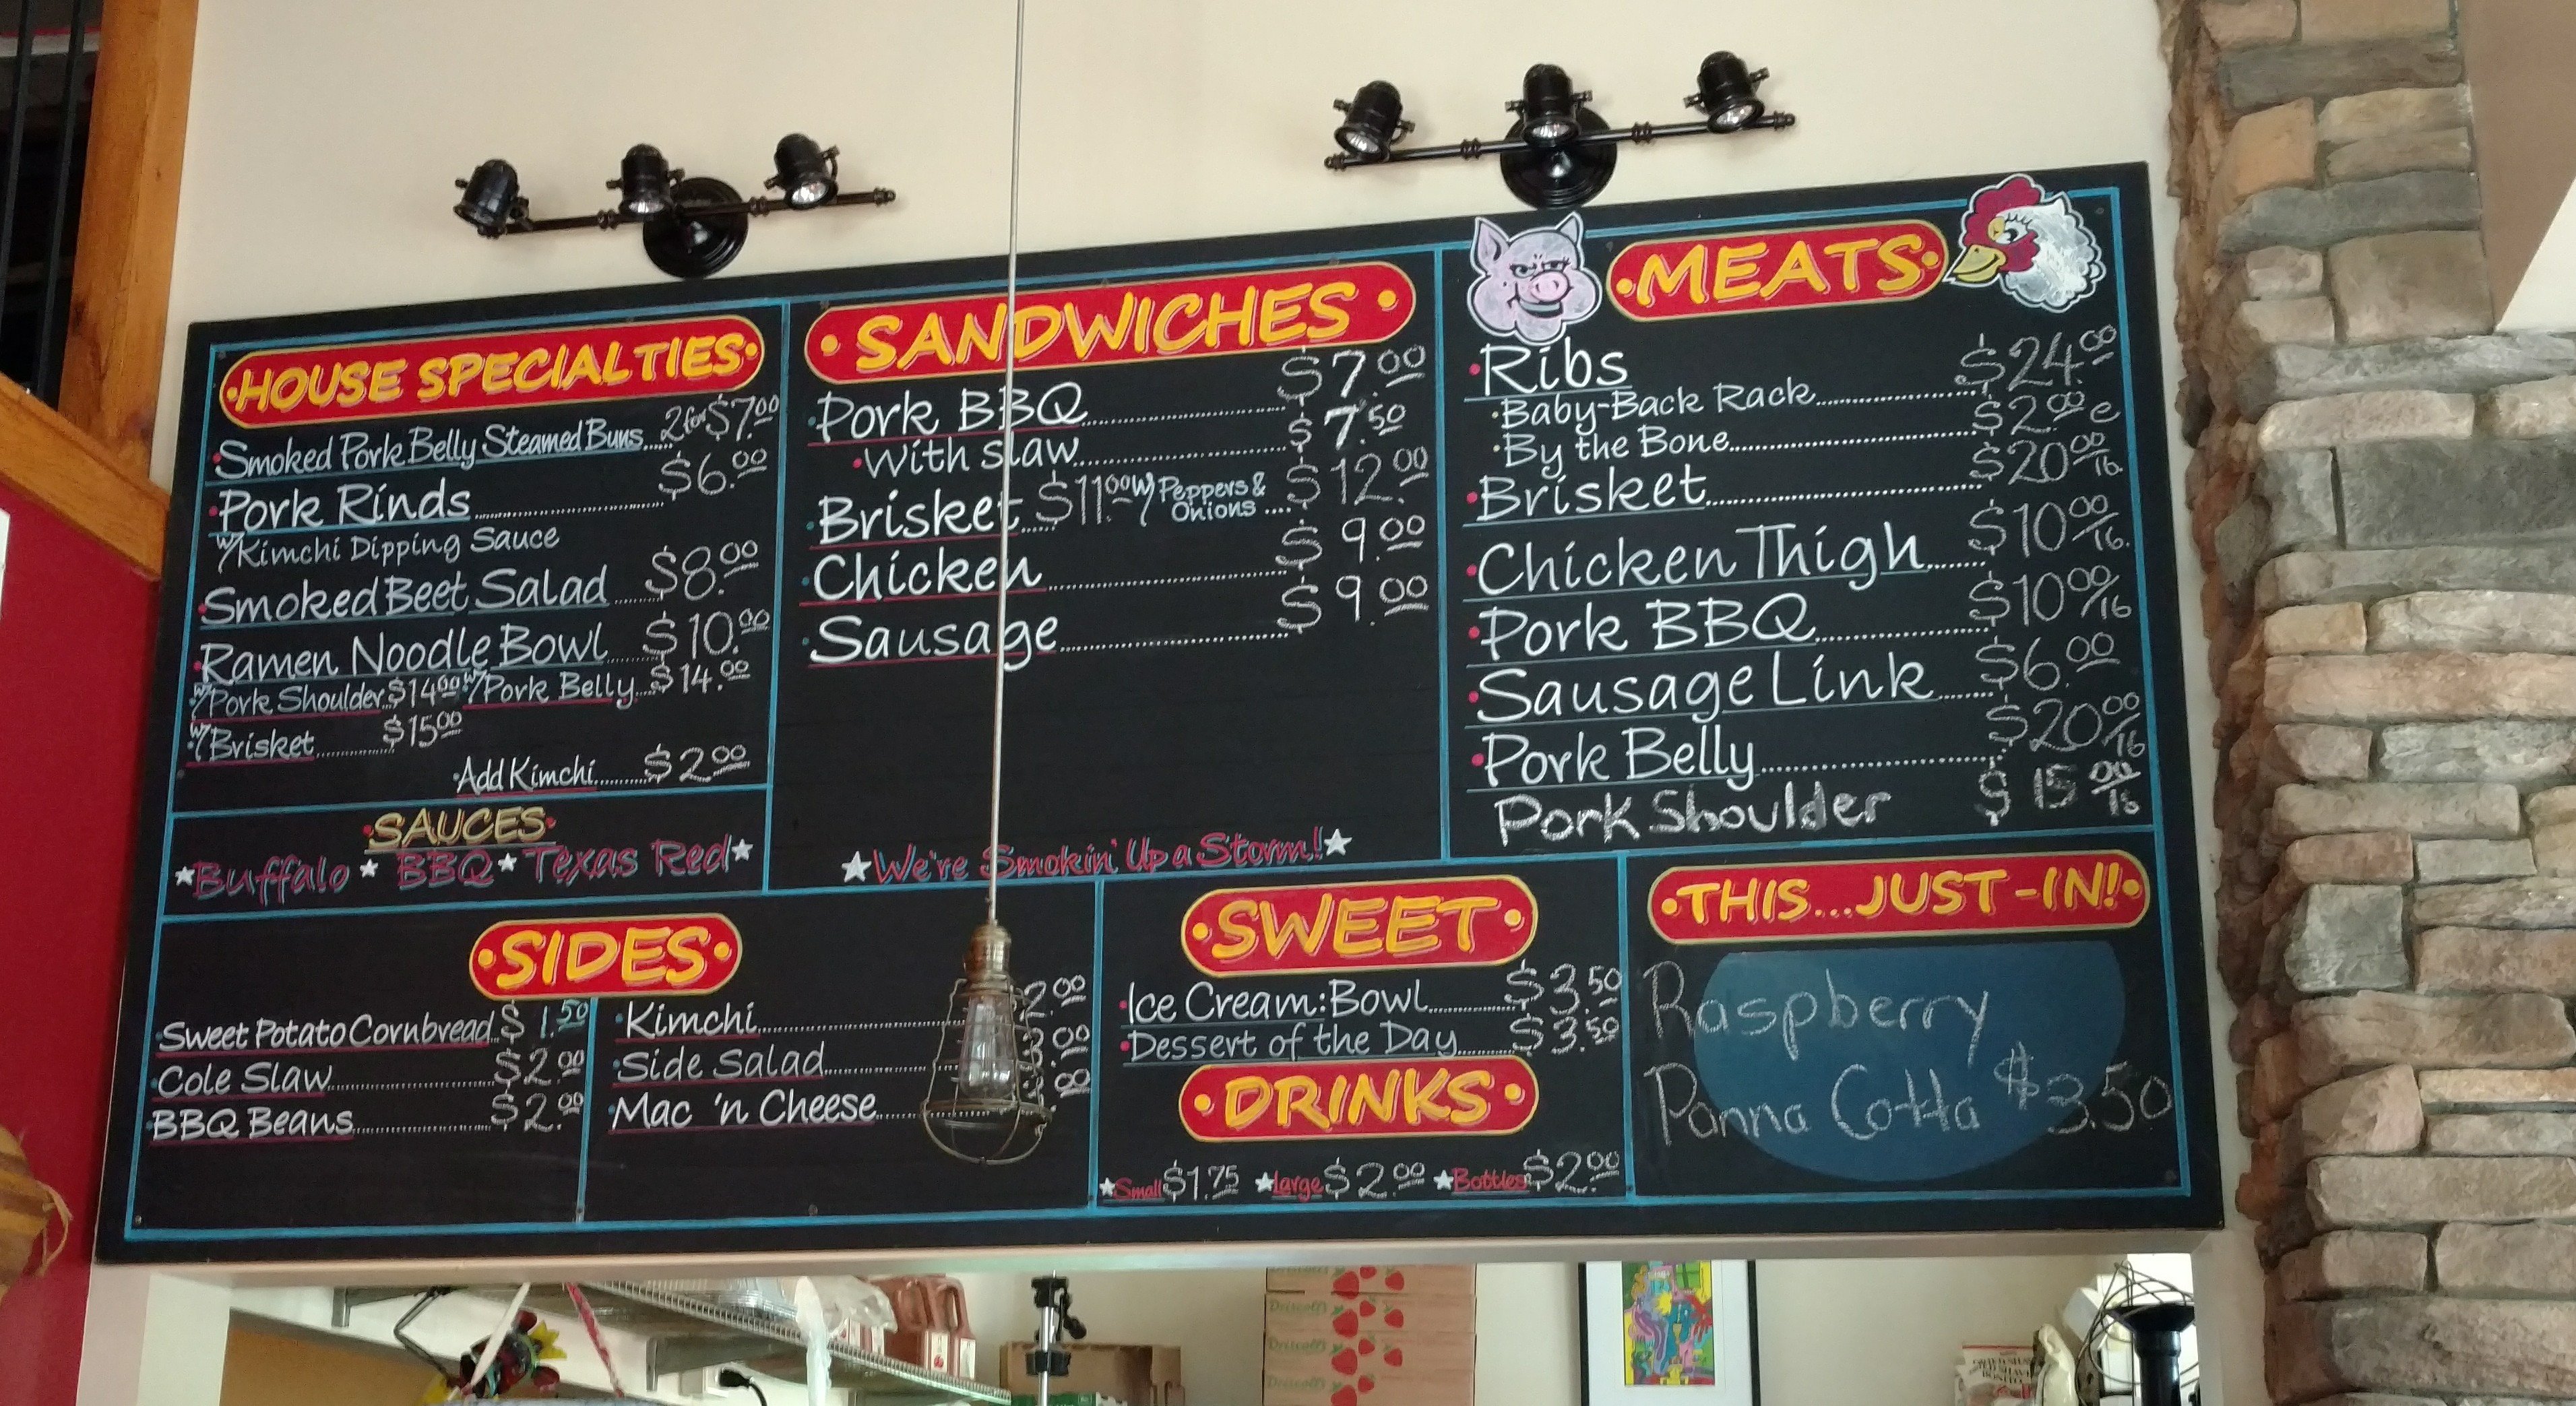 HOUSE SPECIALTIES
Smoked Pork Belly Steamed Buns....2 for $7.00
Pork Rinds..........$6.00
w/Kimchi Dipping Sauce
Smoked Beet Salad......$8.00
Ramen Noodle Bowl......$10.00
w/Pork Shoulder..$14.00 w/Pork Belly...$14.00
w/Brisket..........$15.00
Add Kimchi........$2.00
SAUCES
Buffalo BBQ Texas Red
SANDWICHES
Pork BBQ..........$7.00
With Slaw..........$7.50
Brisket....$11.00 w/ Peppers & Onions....$12.00
Chicken..........$9.00
Sausage..........$9.00
We're Smokin' Up a Storm!
MEATS
Ribs
Baby-Back Rack..........$24.00
By the Bone..........$2.00 e
Brisket..........$20.00/lb
Chicken Thigh......$10.00/lb.
Pork BBQ..........$10.00/lb
Sausage Link......$6.00
Pork Belly..........$20.00/lb
Pork Shoulder $15.00/lb
SIDES
Sweet Potato Cornbread..$1.50
Cole Slaw..........$2.00
BBQ Beans..........$2.00
Kimchi..........2.00
Side Salad..........3.00
Mac 'n Cheese....
SWEET
Ice Cream: Bowl..........$3.50
Dessert of the Day......$3.50
DRINKS
Small $1.75 Large $2.00 Bottles $2.00
THIS...JUST-IN!
Raspberry
Panna Cotta $3.50
Driscoll's
Driscoll's
Driscoll's
Driscoll's